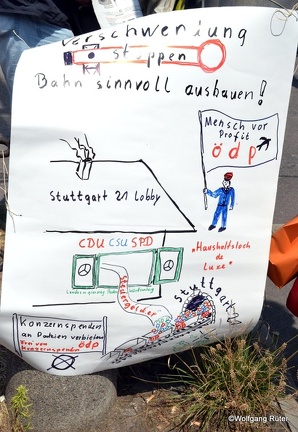 Verschwendung
stoppen
Bahn sinnvoll ausbauen!
Mensch vor
Profit
ödp
Stuttgart 21 Lobby
CDU CSU SPD
"Haushaltsloch
de
Luxe"
Steuergelder
Stuttgart
Konzernspenden
an Parteien verbieten
Frei von
Konzernspenden
ödp
©Wolfgang Rüter